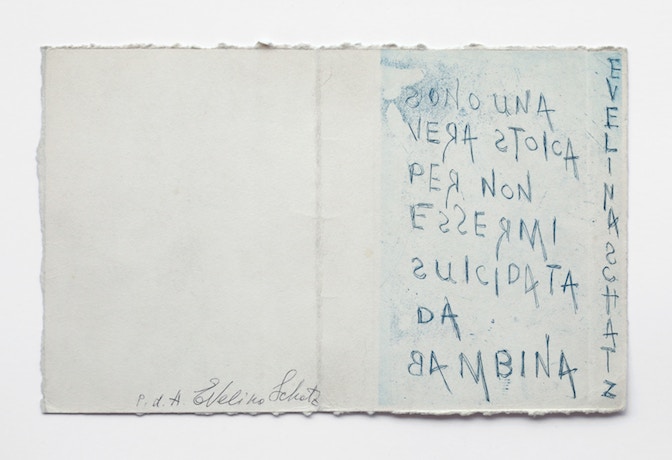 SONO UNA
VERA STOICA
PER NON
ESSERMI
SUICIDATA
DA
BAMBINA
EVELINA SCHATZ
P. d. A. Evelina Schatz